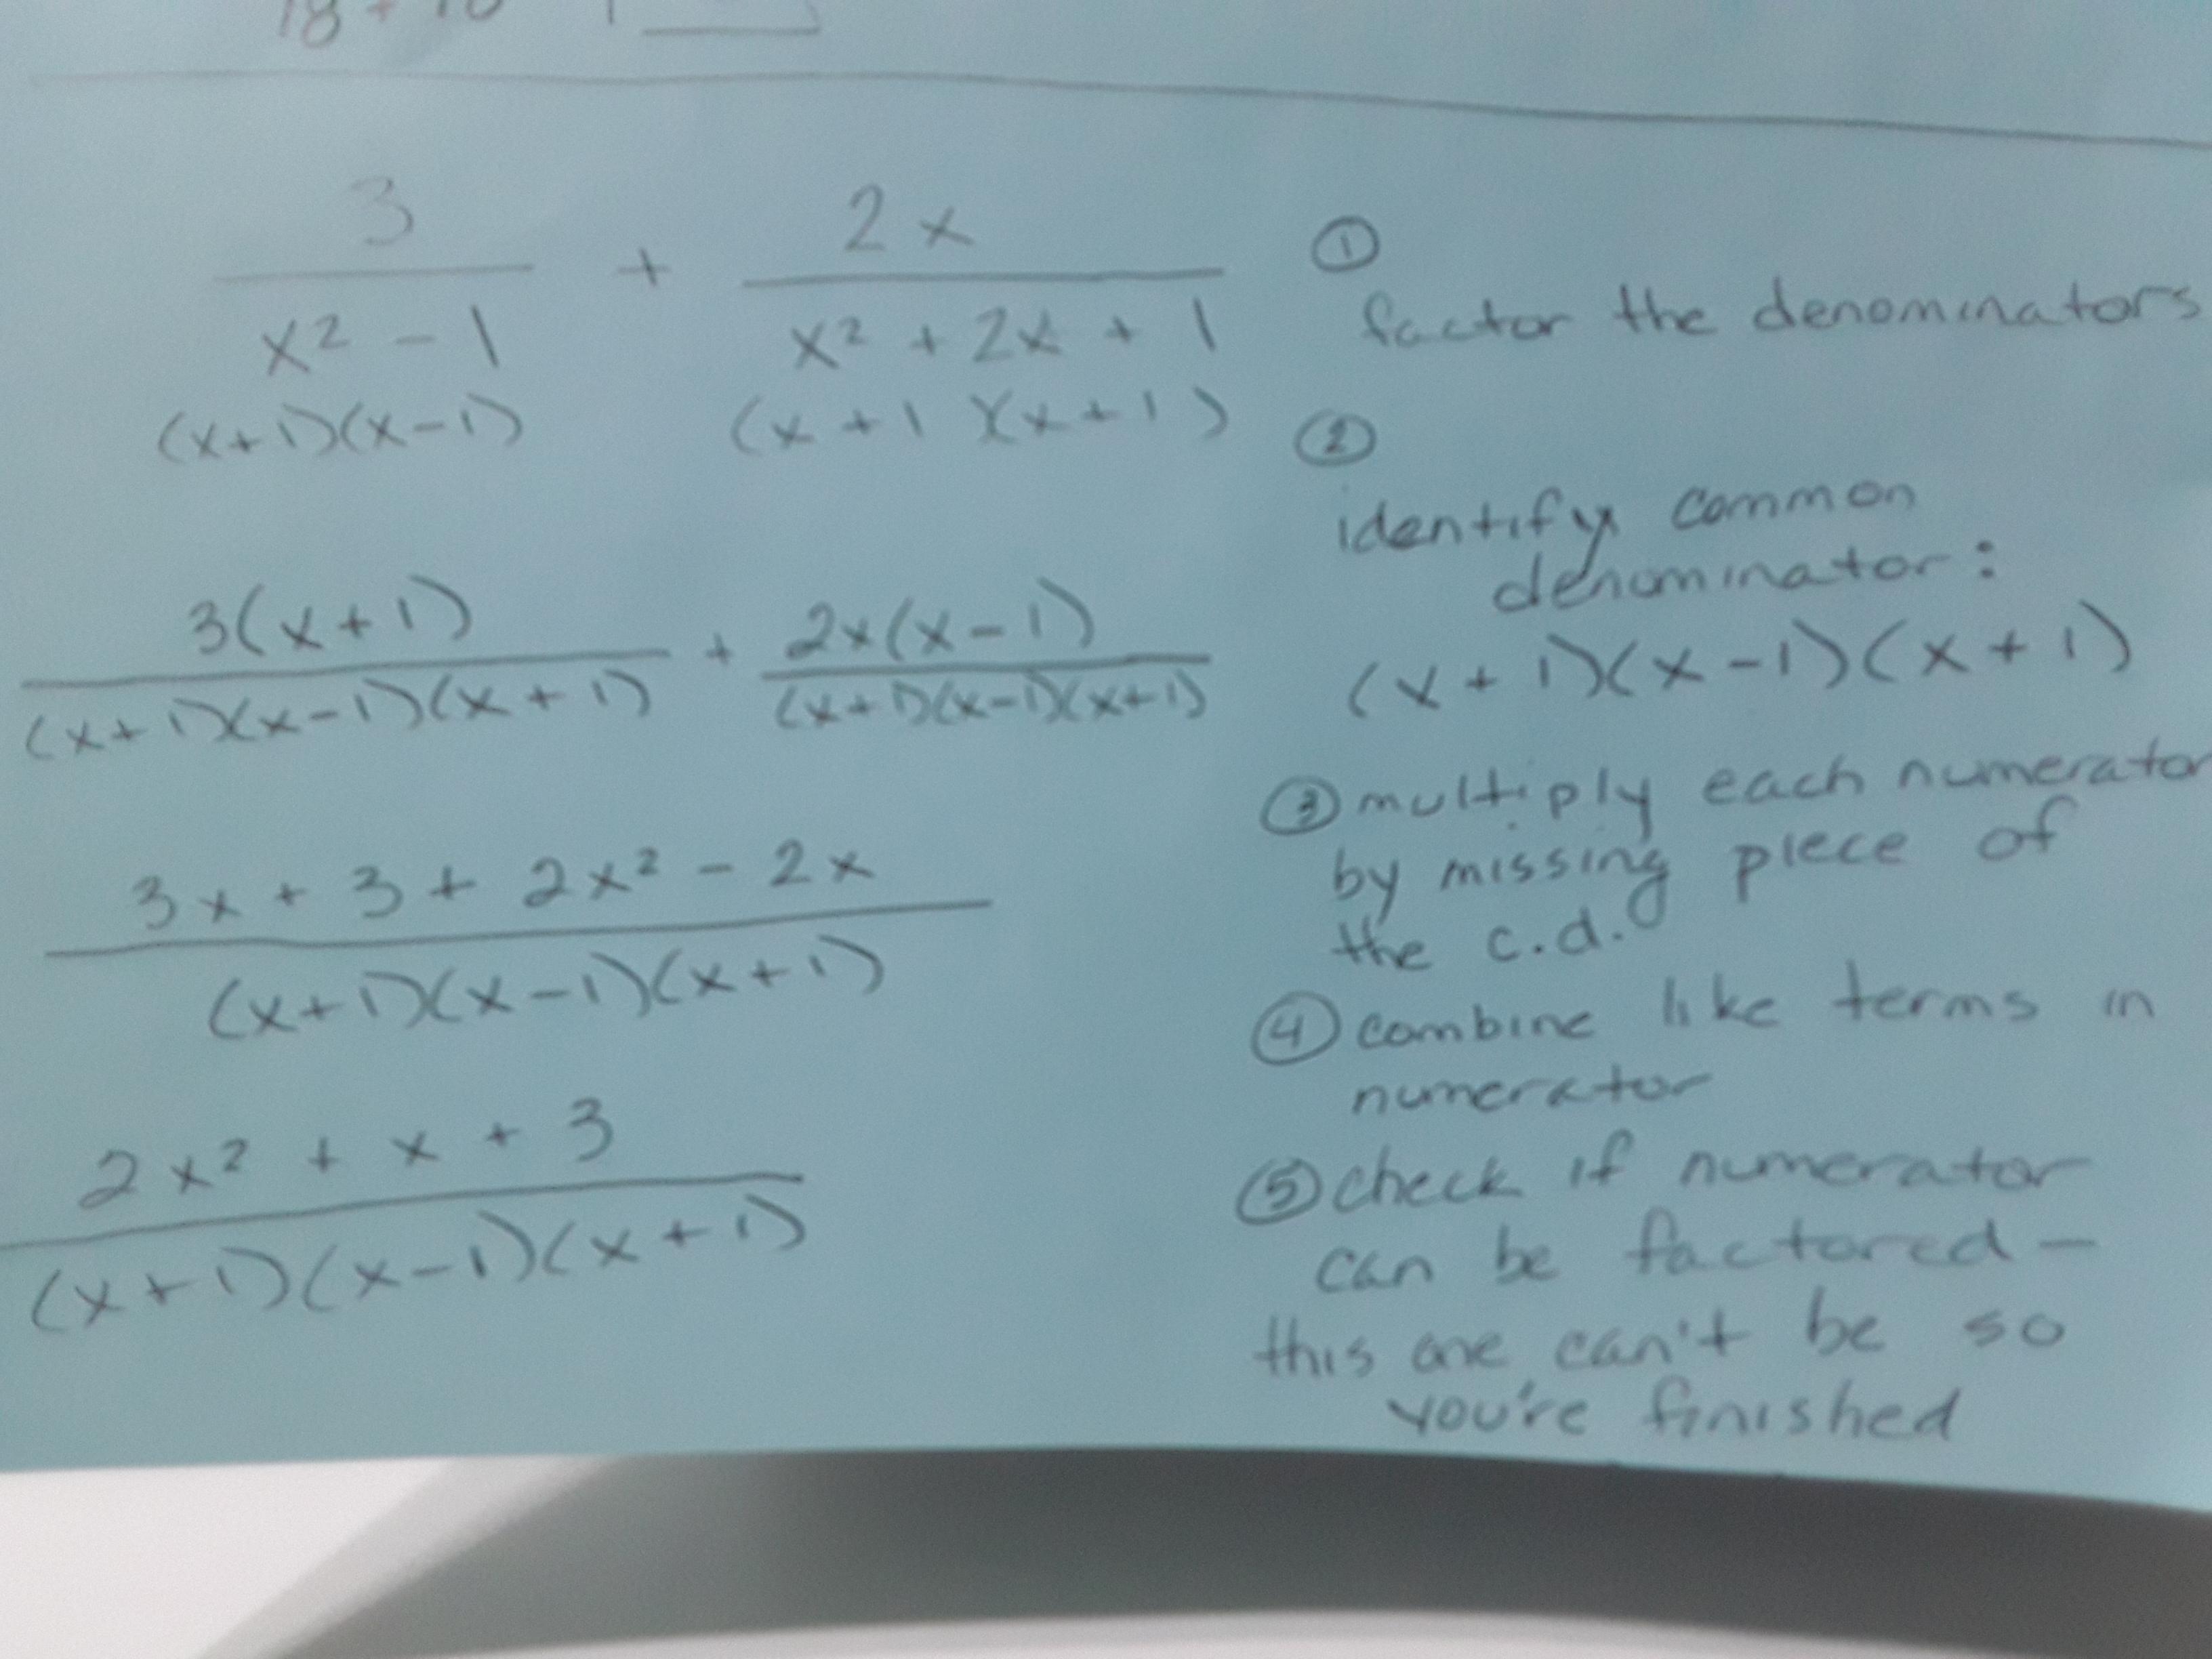 18 + 10
3 + 2x
x² - 1 x² + 2x + 1
(x+1)(x-1) (x + 1)(x+1)
3(x+1) + 2x(x-1)
(x+1)(x-1)(x+1) (x+1)(x-1)(x+1)
3x + 3 + 2x² - 2x
(x+1)(x-1)(x+1)
2x² + x + 3
(x+1)(x-1)(x+1)
①
factor the denominators
②
identify common
denominator:
(x+1)(x-1)(x+1)
③ multiply each numerator
by missing piece of
the c.d.
④ combine like terms in
numerator
⑤ check if numerator
can be factored -
this one can't be so
you're finished